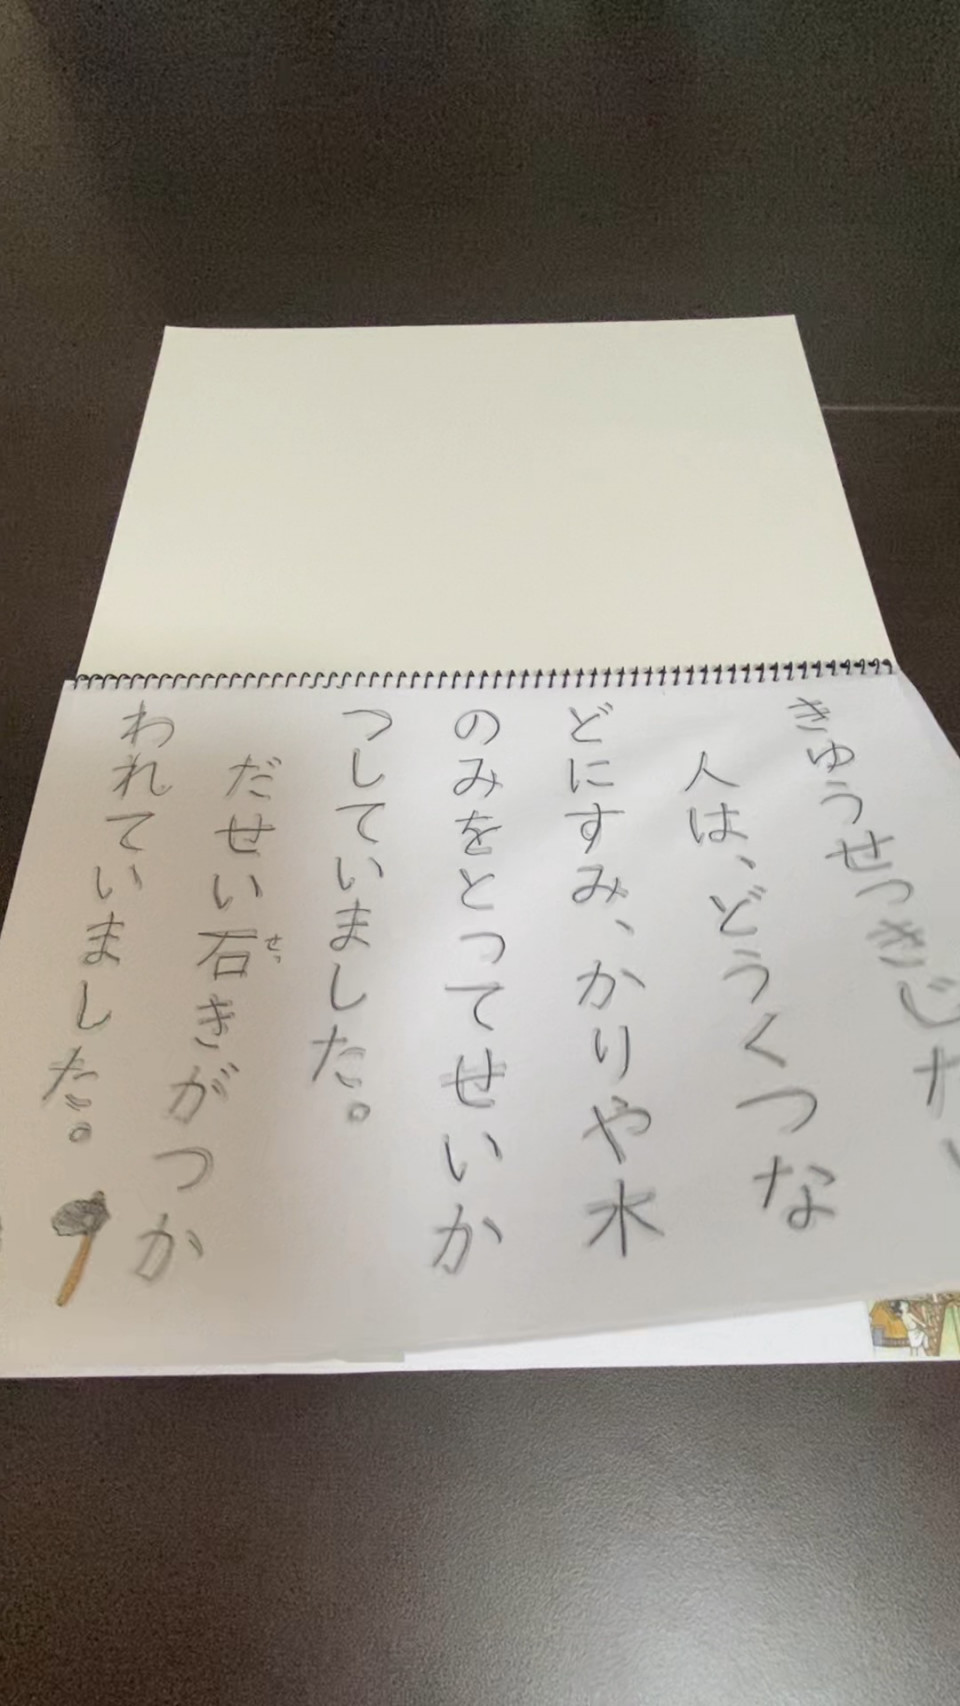 きゅうせっきじだい
人は、どうくつな
どにすみ、かりや水
のみをとってせいか
つしていました。
だせい石きがつか
せっ
われていました。